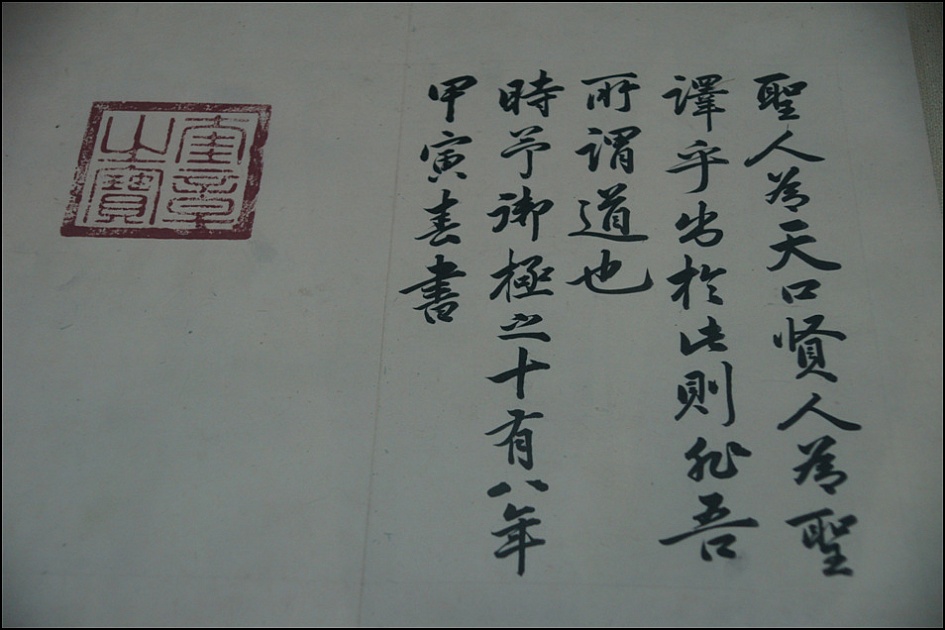 聖人為天口賢人為聖
譯乎出於此則非吾
所謂道也
時予御極之十有八年
甲寅春書
奎章之寶